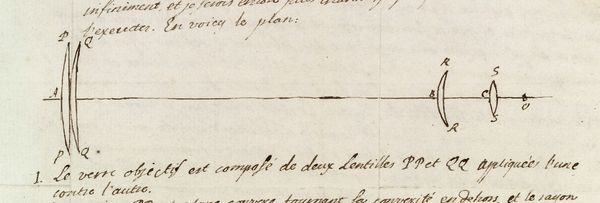 infiniment, et je serois encore plus
l'executer. En voicy le plan:
P Q
R S
A B C O
P Q
R S
1. Le verre objectif est composé de deux Lentilles PP et QQ appliquées l'une
contre l'autre.
convexe tournant sa convexité en dehors, et le rayon